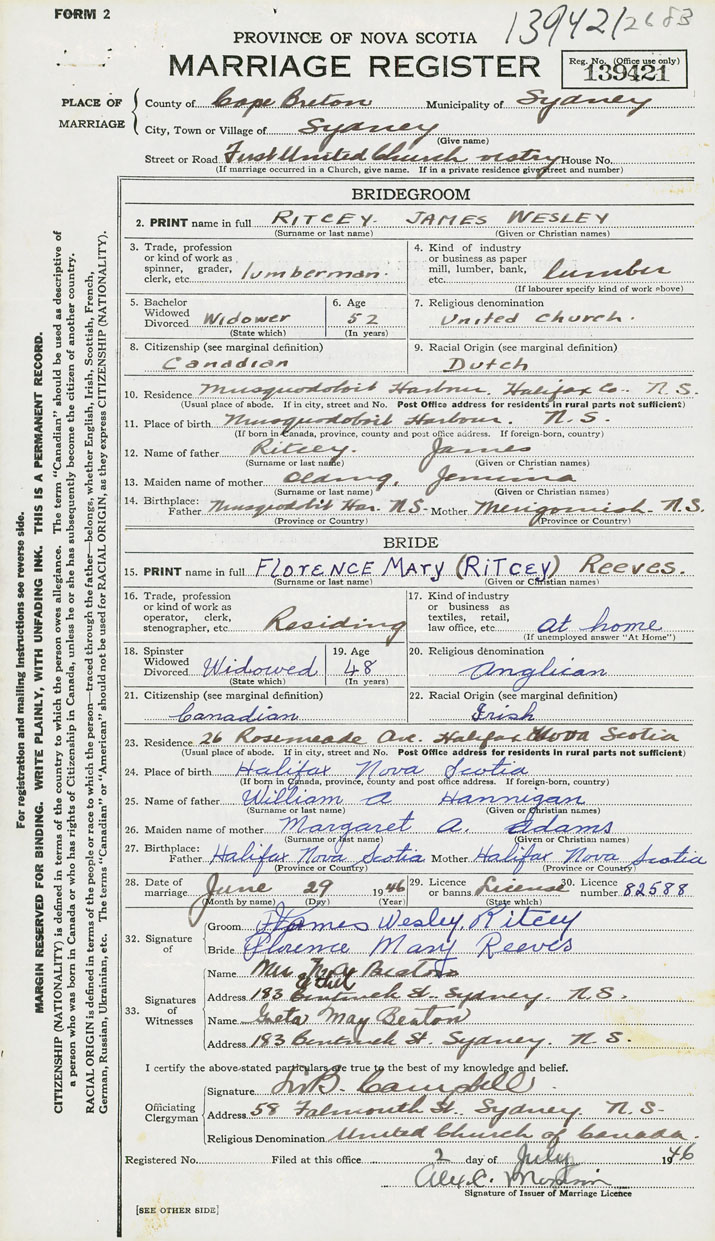 FORM 2
139421 2683
PROVINCE OF NOVA SCOTIA
MARRIAGE REGISTER
Reg. No. (Office use only)
139421
PLACE OF MARRIAGE
County of Cape Breton Municipality of Sydney
City, Town or Village of Sydney
(Give name)
Street or Road First United Church vestry House No.
(If marriage occurred in a Church, give name. If in a private residence give street and number)
BRIDEGROOM
2. PRINT name in full RITCEY JAMES WESLEY
(Surname or last name) (Given or Christian names)
3. Trade, profession or kind of work as spinner, grader, clerk, etc. lumberman.
4. Kind of industry or business as paper mill, lumber, bank, etc. lumber
(If labourer specify kind of work above)
5. Bachelor Widowed Divorced Widower
(State which)
6. Age 52
(In years)
7. Religious denomination
United Church.
8. Citizenship (see marginal definition)
Canadian
9. Racial Origin (see marginal definition)
Dutch
10. Residence Musquodoboit Harbour, Halifax Co. N.S.
(Usual place of abode. If in city, street and No. Post Office address for residents in rural parts not sufficient)
11. Place of birth Musquodoboit Harbour. N.S.
(If born in Canada, province, county and post office address. If foreign-born, country)
12. Name of father Ritcey. James
(Surname or last name) (Given or Christian names)
13. Maiden name of mother Olding, Jemima
(Surname or last name) (Given or Christian names)
14. Birthplace: Father Musquodobit Har. N.S. Mother Merigomish N.S.
(Province or Country) (Province or Country)
BRIDE
15. PRINT name in full FLORENCE MARY (RITCEY) REEVES.
(Surname or last name) (Given or Christian names)
16. Trade, profession or kind of work as operator, clerk, stenographer, etc. Residing
17. Kind of industry or business as textiles, retail, law office, etc. at home
(If unemployed answer "At Home")
18. Spinster Widowed Divorced Widowed
(State which)
19. Age 48
(In years)
20. Religious denomination
Anglican
21. Citizenship (see marginal definition)
Canadian
22. Racial Origin (see marginal definition)
Irish
23. Residence 26 Rosemeade Ave. Halifax Nova Scotia
(Usual place of abode. If in city, street and No. Post Office address for residents in rural parts not sufficient)
24. Place of birth Halifax Nova Scotia
(If born in Canada, province, county and post office address. If foreign-born, country)
25. Name of father William A Hannigan
(Surname or last name) (Given or Christian names)
26. Maiden name of mother Margaret A. Adams
(Surname or last name) (Given or Christian names)
27. Birthplace: Father Halifax Nova Scotia Mother Halifax Nova Scotia
(Province or Country) (Province or Country)
28. Date of marriage June 29 1946
(Month by name) (Day) (Year)
29. Licence or banns License
(State which)
30. Licence number 82588
32. Signature of
Groom James Wesley Ritcey
Bride Florence Mary Reeves
33. Signatures of Witnesses
Name Mrs. May Beaton
Ethel
Address 183 Bentinck St. Sydney. N.S.
Name Greta May Beaton
Address 183 Bentinck St. Sydney. N.S.
I certify the above-stated particulars are true to the best of my knowledge and belief.
Officiating Clergyman
Signature B. Campbell
Address 58 Falmouth St. Sydney. N.S.
Religious Denomination United Church of Canada.
Registered No. Filed at this office 2 day of July 1946
Alex. C.
Signature of Issuer of Marriage Licence
[SEE OTHER SIDE]
For registration and mailing instructions see reverse side.
MARGIN RESERVED FOR BINDING. WRITE PLAINLY, WITH UNFADING INK. THIS IS A PERMANENT RECORD.
CITIZENSHIP (NATIONALITY) is defined in terms of the country to which the person owes allegiance. The term "Canadian" should be used as descriptive of
a person who was born in Canada or who has rights of Citizenship in Canada, unless he or she has subsequently become the citizen of another country.
RACIAL ORIGIN is defined in terms of the people or race to which the person—traced through the father—belongs, whether English, Irish, Scottish, French,
German, Russian, Ukrainian, etc. The terms "Canadian" or "American" should not be used for RACIAL ORIGIN, as they express CITIZENSHIP (NATIONALITY).